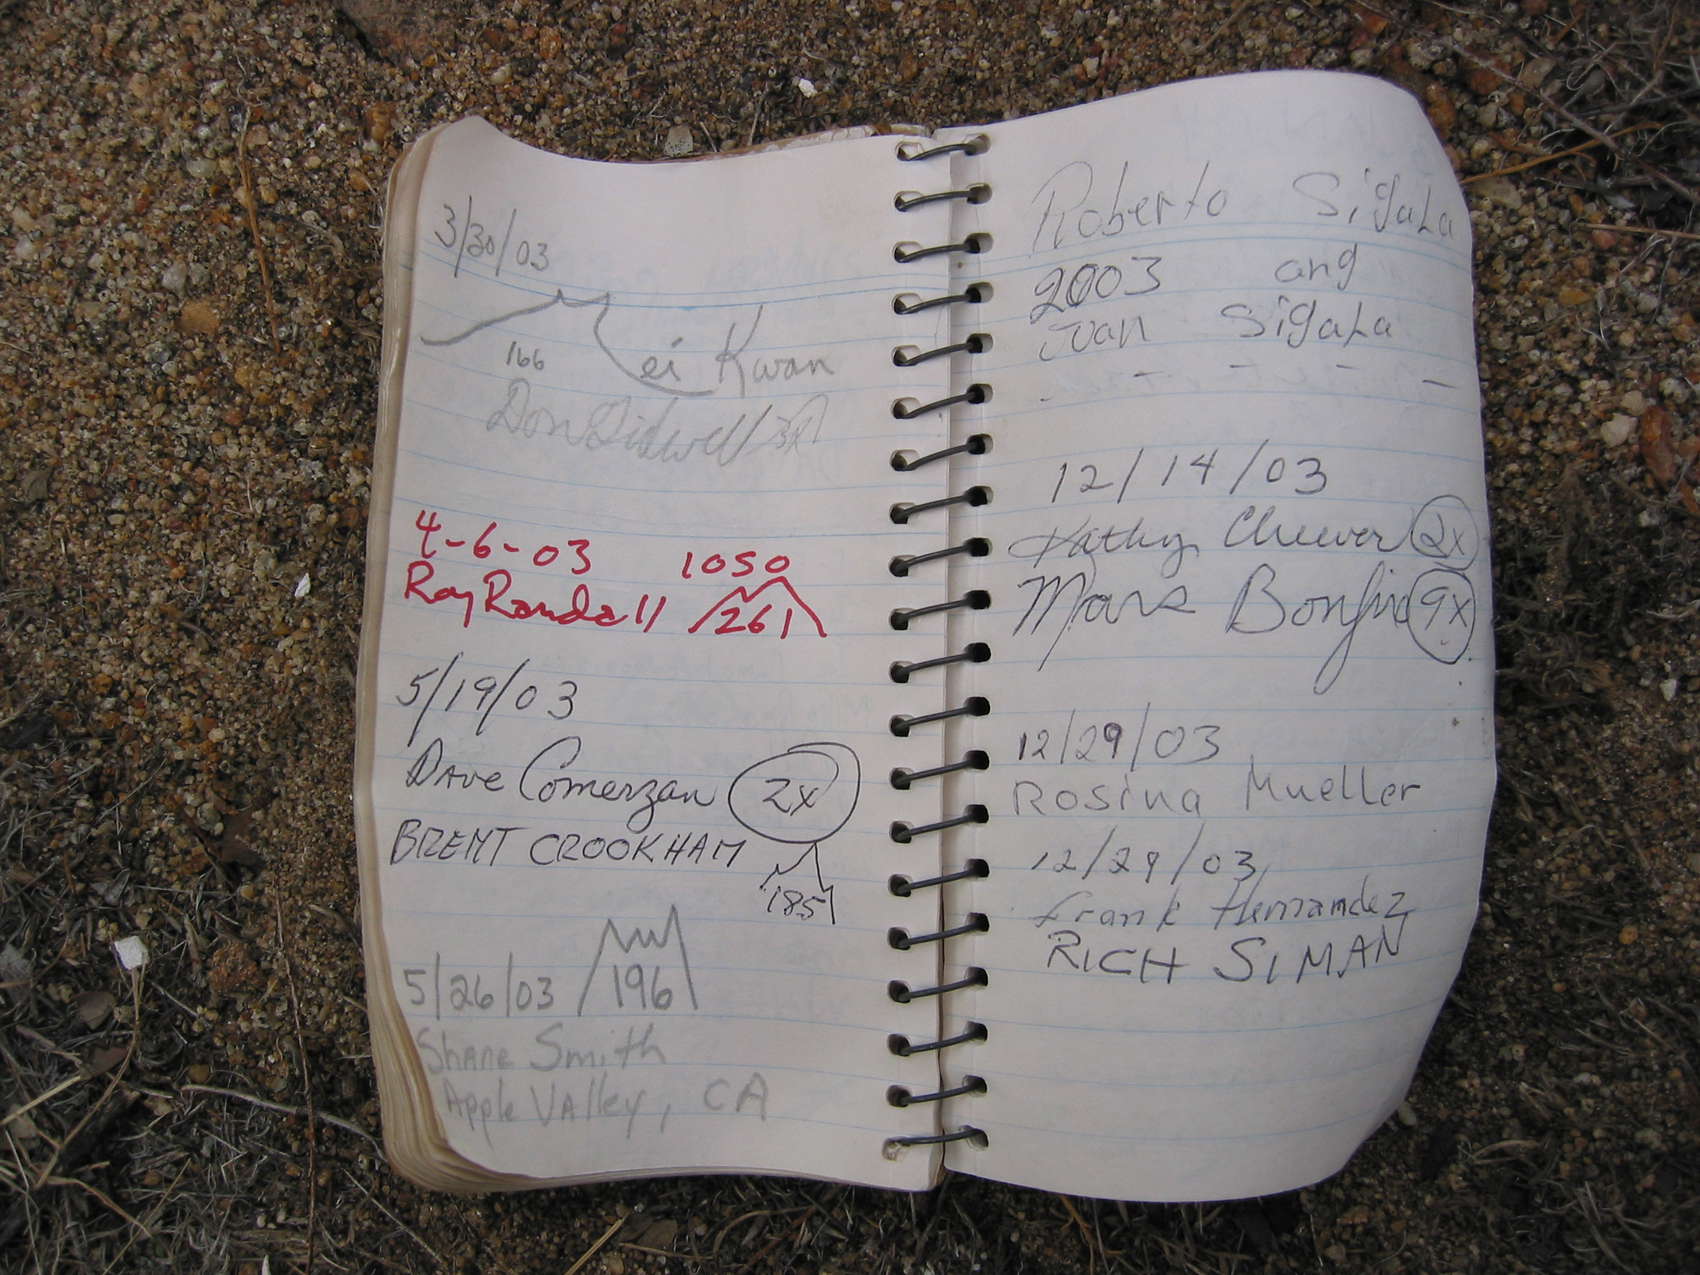 3/30/03
ei Kwan
166
Don Sidwell
4-6-03 1050
Ray Randall 261
5/19/03
Dave Comerzan 2x
BRENT CROOKHAM
185
5/26/03 196
Shane Smith
Apple Valley, CA
Roberto Sigala
2003 ang
Juan Sigala
12/14/03
Kathy Cheever 2x
Mars Bonfire 9x
12/29/03
Rosina Mueller
12/29/03
Frank Hernandez
RICH SIMAN